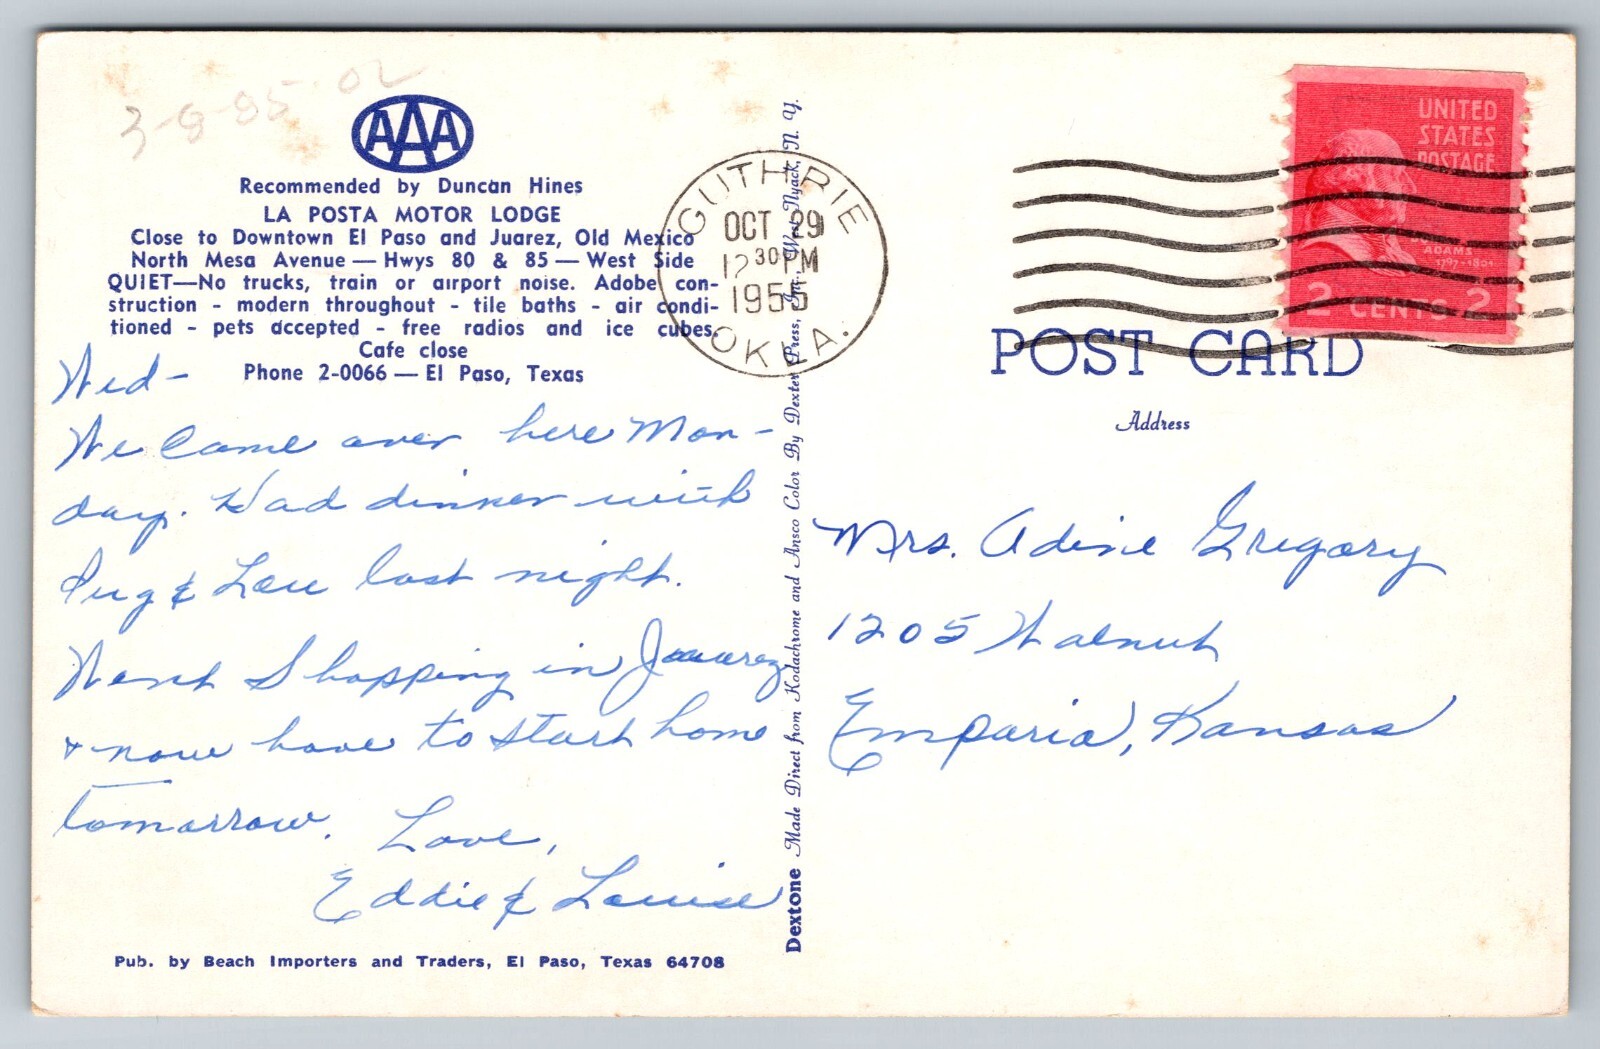 3-8-85 02
AAA
Recommended by Duncan Hines
LA POSTA MOTOR LODGE
Close to Downtown El Paso and Juarez, Old Mexico
North Mesa Avenue — Hwys 80 & 85 — West Side
QUIET—No trucks, train or airport noise. Adobe con-
struction - modern throughout - tile baths - air condi-
tioned - pets accepted - free radios and ice cubes.
Cafe close
Phone 2-0066 — El Paso, Texas
Wed-
We came over here Mon-
day. Had dinner with
Pug & Lou last night.
Went Shopping in Jauarez
& now have to start home
tomorrow. Love,
Eddie & Louise
Pub. by Beach Importers and Traders, El Paso, Texas 64708
Dextone Made Direct from Kodachrome and Ansco Color By Dexter Press, Inc., West Nyack, N. Y.
GUTHRIE
OCT 29
12 30 PM
1955
OKLA.
UNITED
STATES
POSTAGE
ADAMS
1797-1801
2 CENTS 2
POST CARD
Address
Mrs. Adine Gregory
1205 Walnut
Emporia, Kansas